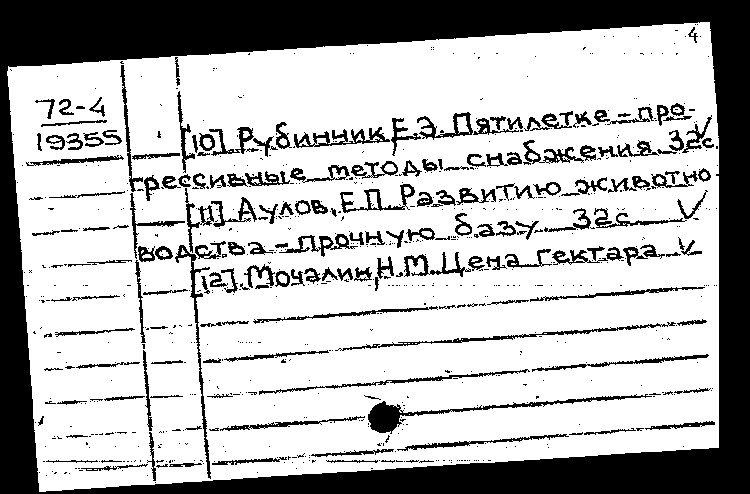 4
72-4
19355
[10] Рубинчик, Е.Э. Пятилетке - про-
грессивные методы снабжения. 32с
[11] Аулов, Е.П. Развитию животно-
водства - прочную базу 32с.
[12] Мочалин, Н.М. Цена гектара